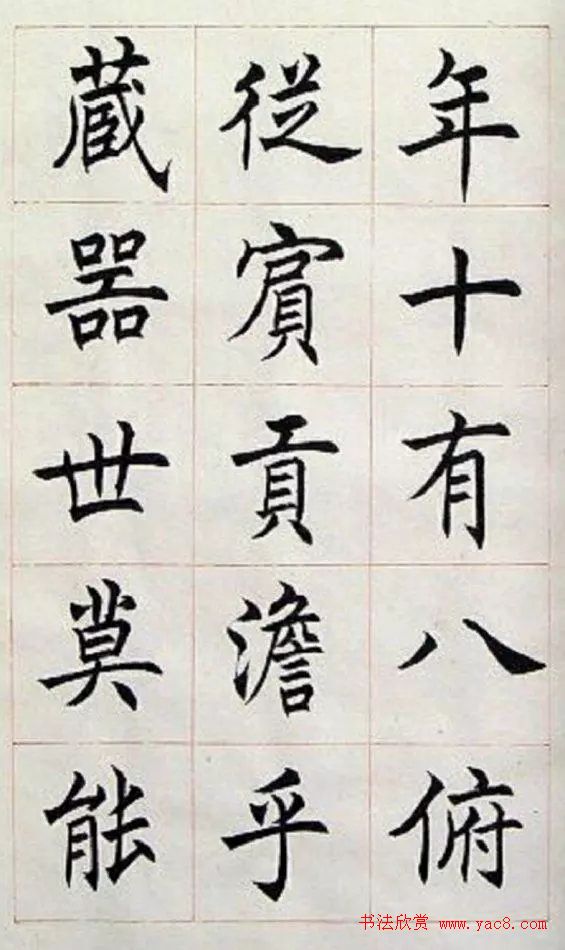 年十有八俯
從賓貢澹乎
藏器世莫能
书法欣赏 www.yac8.com